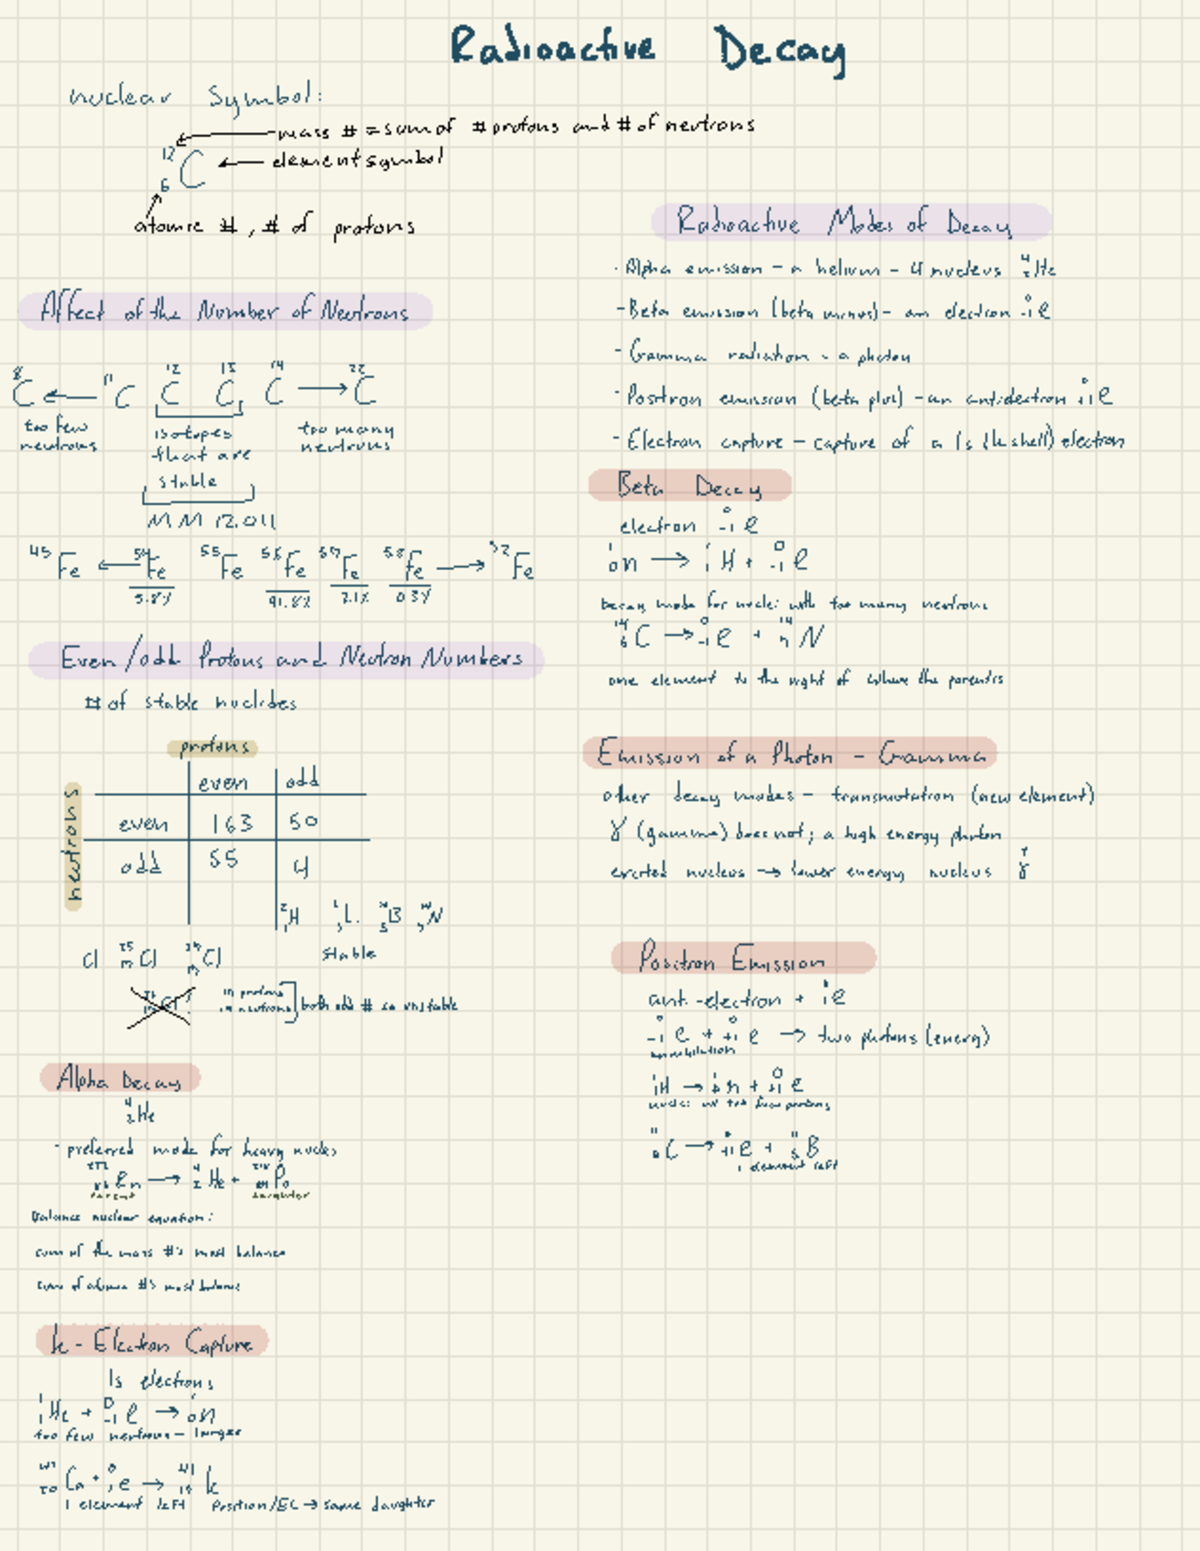 Radioactive Decay
nuclear Symbol:
mass # = sum of # protons and # of neutrons
12 C ← element symbol
6
atomic #, # of protons
Affect of the Number of Neutrons
8 C ← 11 C 12 C 13 C, 14 C → 22 C
too few neutrons
isotopes that are stable
too many neutrons
MM 12.011
45 Fe ← 54 Fe 55 Fe 56 Fe 57 Fe 58 Fe → 72 Fe
5.8% 91.8% 2.1% 0.3%
Even/odd Protons and Neutron Numbers
# of stable nuclides
protons
neutrons
even odd
even 163 50
odd 55 4
2 1 H L. B N
stable
Cl 35 17 Cl 37 17 Cl
17 protons
17 neutrons
both odd # so unstable
Alpha Decay
4 2 He
- preferred mode for heavy nuclei
222 86 Rn → 4 2 He + 218 84 Po
parent daughter
Balance nuclear equation:
sum of the mass #'s must balance
sum of atomic #'s must balance
k - Electron Capture
1s electrons
1 1 He + 0 -1 e → 1 0 n
too few neutrons - larger
41 20 Ca + 0 -1 e → 41 19 k
1 element left Position/EC → same daughter
Radioactive Modes of Decay
- Alpha emission - a helium - 4 nucleus 4 2 He
- Beta emission (beta minus) - an electron 0 -1 e
- Gamma radiation - a photon
- Positron emission (beta plus) - an antielectron 0 +1 e
- Electron capture - capture of a 1s (k shell) electron
Beta Decay
electron 0 -1 e
1 0 n → 1 1 H + 0 -1 e
Decay mode for nuclei with too many neutrons
14 6 C → 0 -1 e + 14 7 N
one element to the right of where the parent is
Emission of a Photon - Gamma
other decay modes - transmutation (new element)
γ (gamma) does not; a high energy photon
excited nucleus → lower energy nucleus γ
Positron Emission
anti-electron + 0 1 e
0 -1 e + 0 +1 e → two photons (energy)
annihilation
1 1 H → 1 0 n + 0 +1 e
nuclei w/ too few protons
11 6 C → 0 +1 e + 11 5 B
1 element left